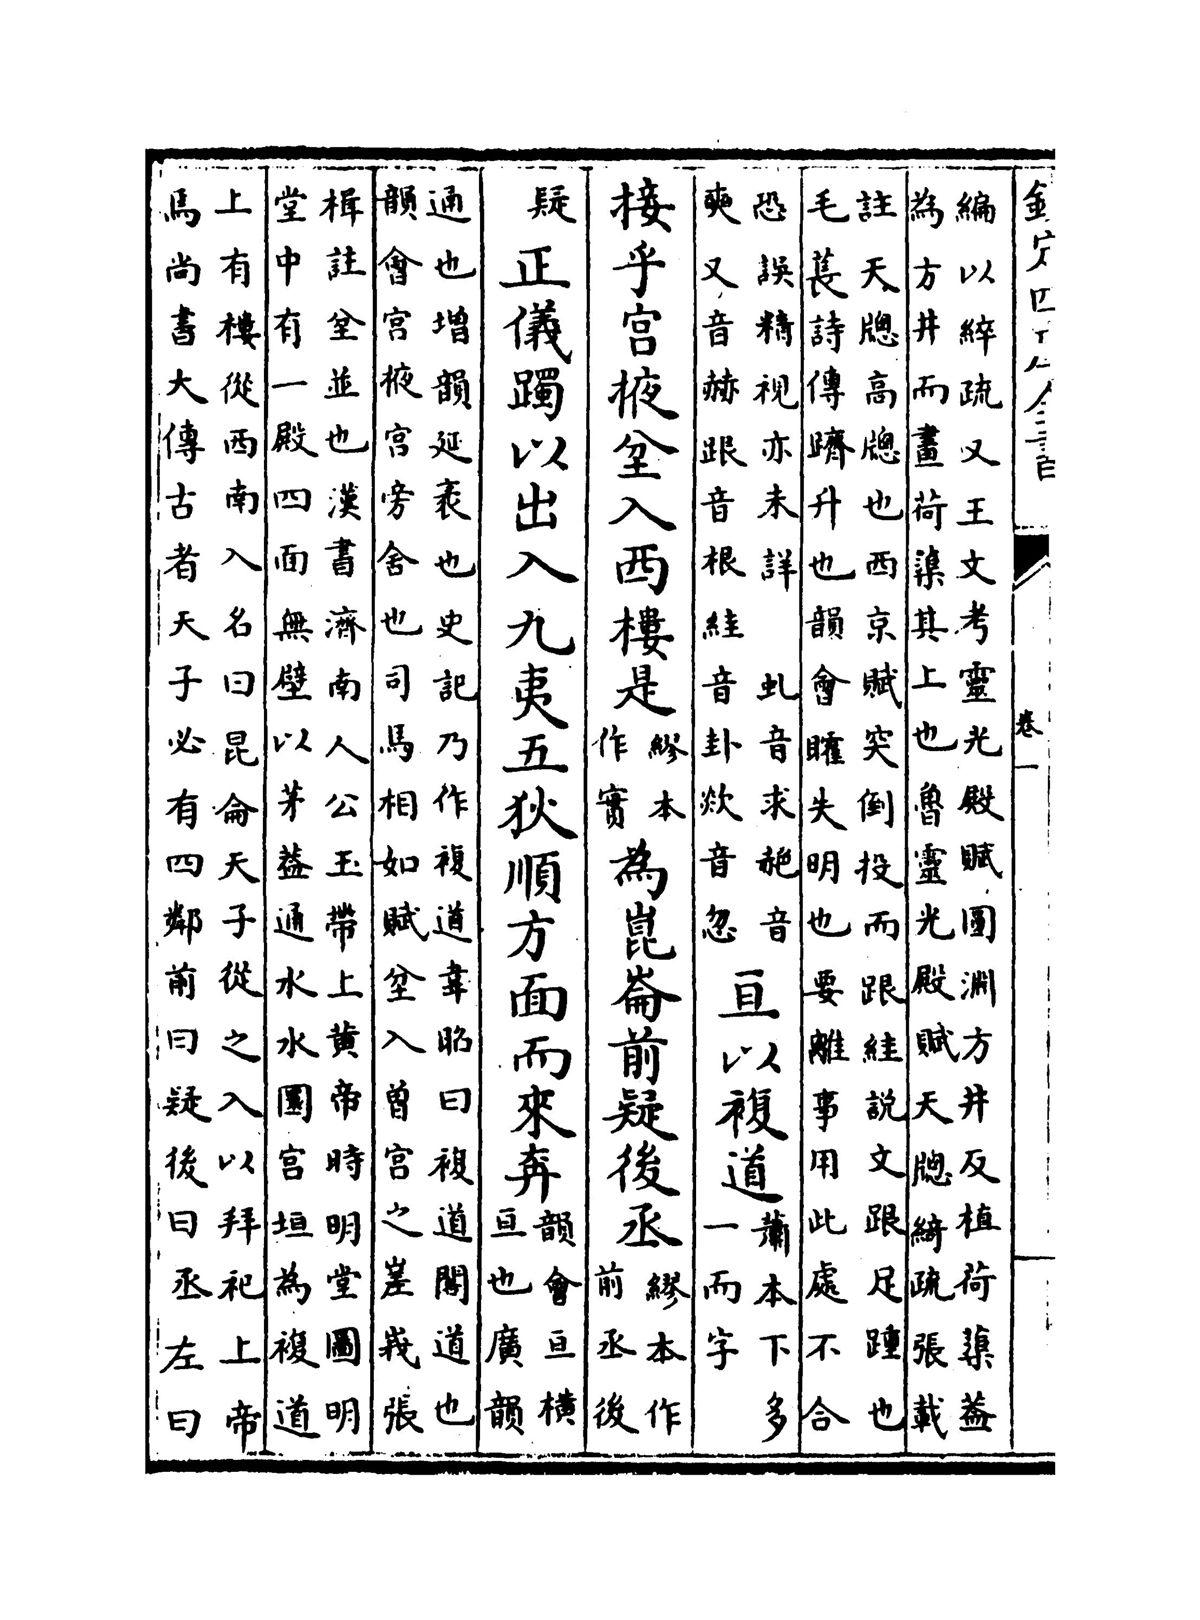 欽定四庫全書
卷一
編以綷疏又王文考靈光殿賦圓淵方井反植荷蕖葢
為方井而畫荷蕖其上也魯靈光殿賦天牕綺疏張載
註天牕高牕也西京賦突倒投而跟絓說文跟足踵也
毛萇詩傳躋升也韻會矐失明也要離事用此處不合
恐誤精視亦未詳　虬音求赩音
奭又音赫跟音根絓音卦欻音忽
亘以複道
蕭本下多
一而字
接乎宫掖坌入西樓是
繆本
作實
為崑崙前疑後丞
繆本作
前丞後
疑
正儀躅以出入九夷五狄順方面而來奔
韻會亘橫
亘也廣韻
通也增韻延袤也史記乃作複道韋昭曰複道閣道也
韻會宫掖宫旁舍也司馬相如賦坌入曾宫之嵳峩張
楫註坌並也漢書濟南人公玉帶上黄帝時明堂圖明
堂中有一殿四面無壁以茅葢通水水圜宫垣為複道
上有樓從西南入名曰昆侖天子從之入以拜祀上帝
馬尚書大傳古者天子必有四鄰前曰疑後曰丞左曰